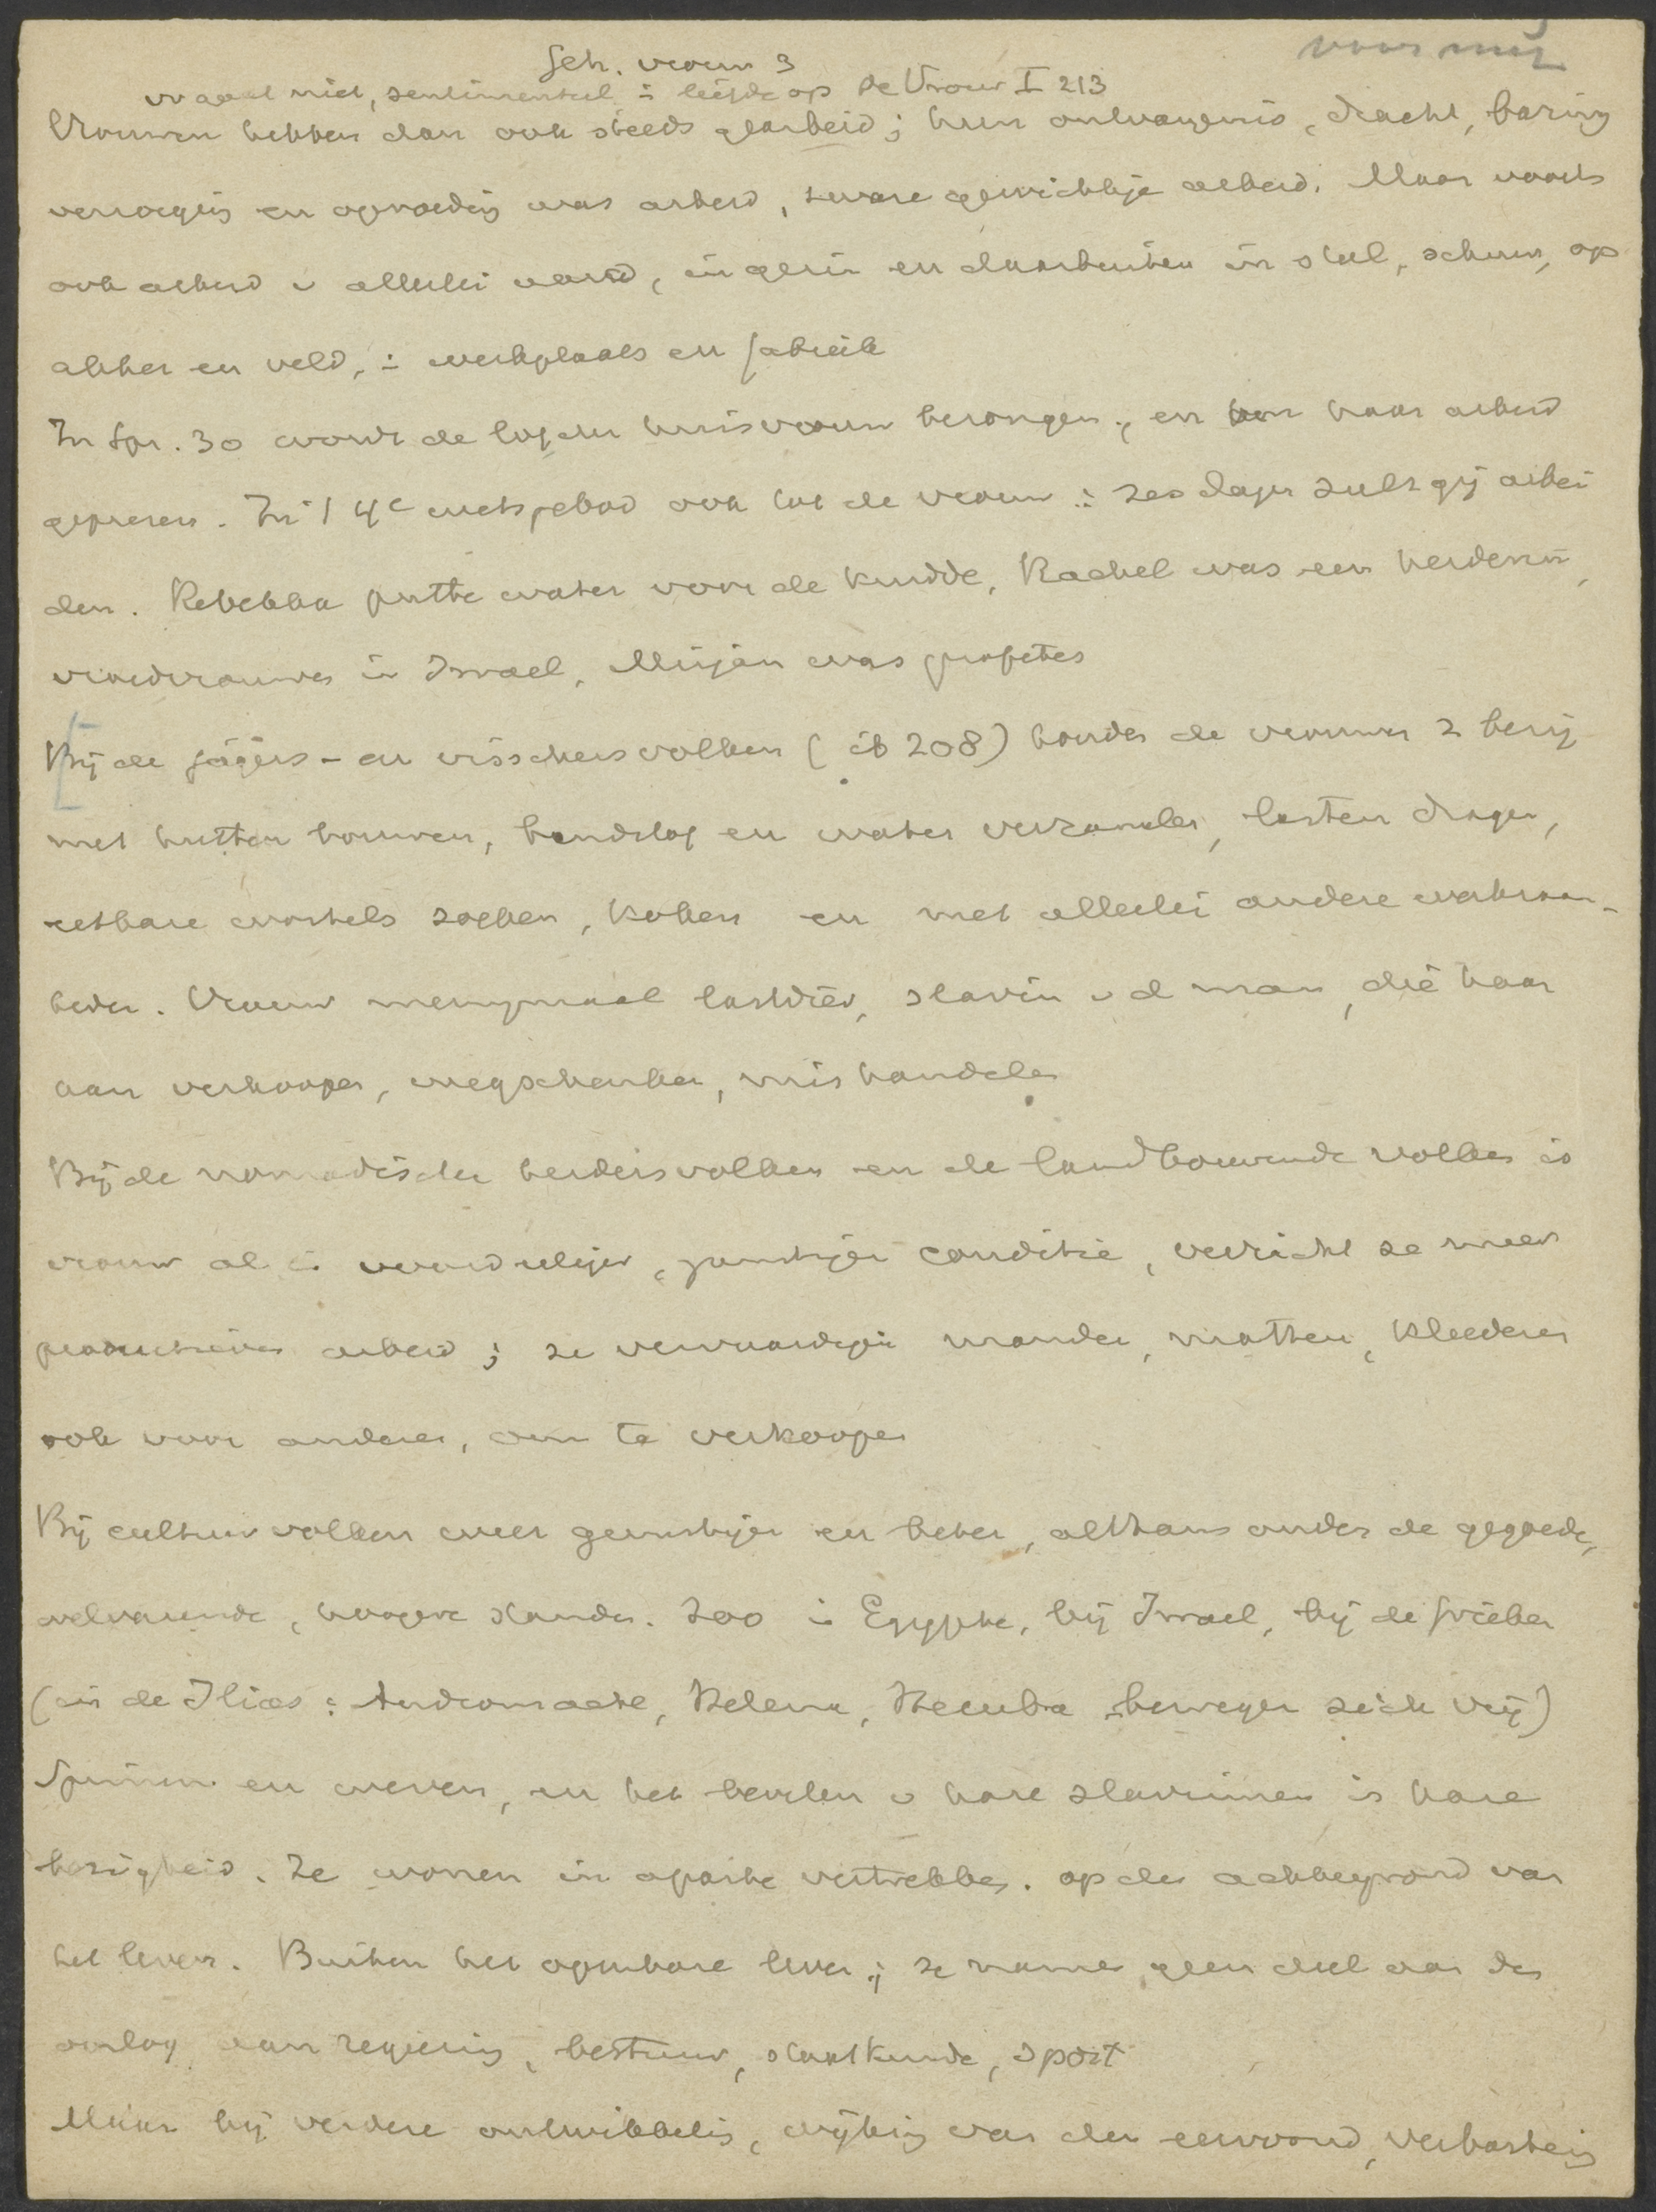 voor mij
Sch. vrouw 3
niet, sentimenteel : liefde op De Vrouw I 213
Vrouwen hebben dan ook steeds gearbeid; hun ontvangenis, dracht, baring
verzorging en opvoeding was arbeid, zware gewichtige arbeid. Maar voorts
ook arbeid v allerlei aard, in gezin en daarbuiten in stal, schuur, op
akker en veld, i werkplaats en fabriek
In Spr. 30 wordt de lof der huisvrouw bezongen, en haar arbeid
geprezen. In 't 4e ook tot de vrouw : zes dagen zult gij arbei
den. Rebekka putte water voor de kudde, Rachel was een herderin,
vroedvrouwen in Israel, Mirjam was profetes
Bij de jagers- en visschersvolken (ib 208) houden de vrouwen z bezig
met hutten bouwen, brandstof en water verzamelen, lasten dragen,
eetbare wortels zoeken, koken en met allerlei andere werkzaam-
heden. Vrouw menigmaal lastdier, slavin v d man, die haar
kan verkoopen, wegschenken, mishandelen
Bij de nomadische herdersvolken en de landbouwende volken is
vrouw al in voordeeliger, gunstiger conditie, verricht ze meer
productieven arbeid; ze vervaardigen manden, matten, kleederen
ook voor anderen, om te verkoopen
Bij cultuurvolken weer gunstiger en beter, althans onder de gegoede,
welvarende, hoogere standen. Zoo in Egypte, bij Israel, bij de Grieken
(in de Ilias : Andromache, Helena, Hecuba bewegen zich vrij)
Spinnen en weven, en het bevelen v hare slavinnen is hare
bezigheid. Ze wonen in aparte vertrekken. op den achtergrond van
het leven. Buiten het openbare leven; ze namen geen deel aan den
oorlog aan regeering, bestuur, staatkunde, sport
Maar bij verdere ontwikkeling, wijking van den eenvoud, verbastering